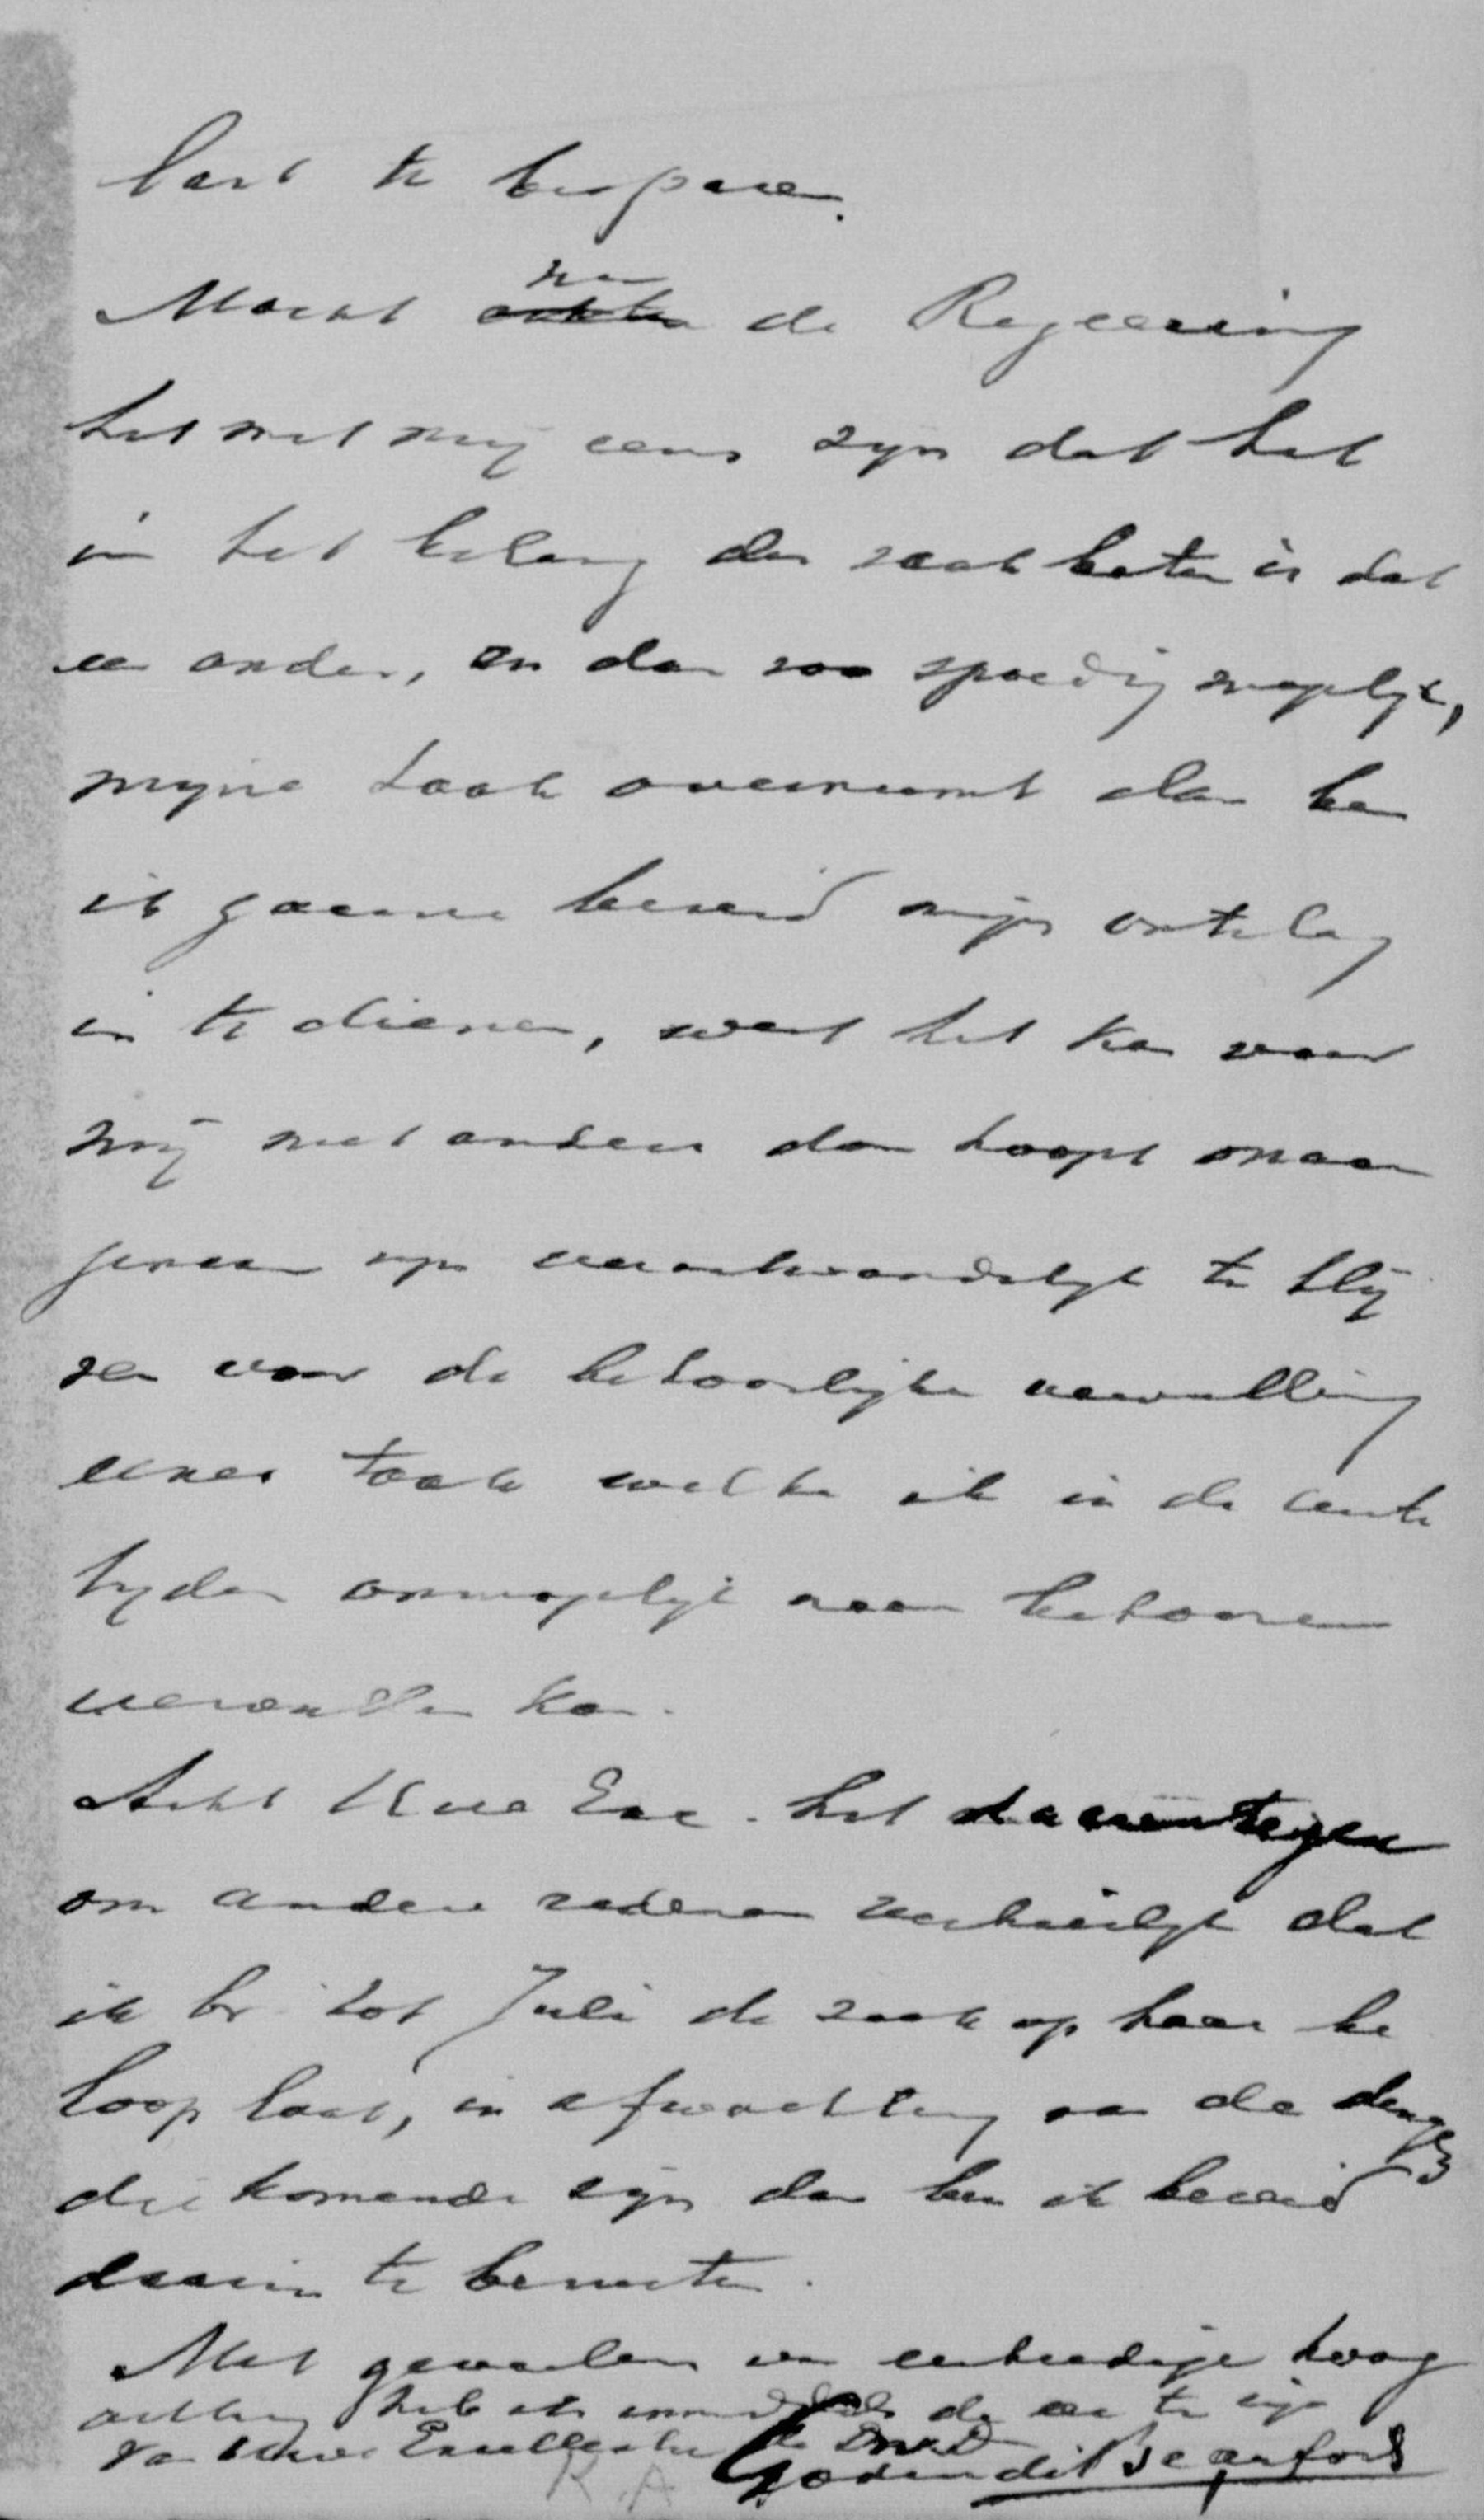 last te besparen.
Mocht nu de Regeering
het met mij eens zijn dat het
in het belang der zaak beter is dat
een ander, en dan zoo spoedig mogelijk,
mijne taak overneemt dan ben
ik gaarne bereid mijn ontslag
in te dienen, want het kan voor
mij niet anders dan hoogst onaan
genaam zijn verantwoordelijk te blij
ven voor de behoorlijke vervulling
eener taak welke ik in de
tijden onmogelijk naar behooren
vervullen kan.
Acht Uwe Exc. het daarentegen
om andere redenen verkieslijk dat
ik tot Juli de zaak op haar be
loop laat, in afwachting van de dingen
die komende zijn dan ben ik bereid
daarin te berusten.
Met gevoelens van eerbiedige hoog
achting heb ik inmiddels de eer te zijn
van Uwe Excellentie de Dnr
Godin de Beaufort
R. A